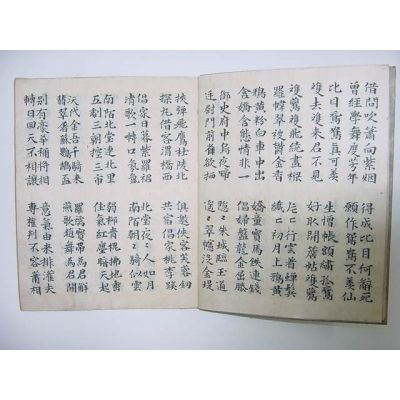 借問吹簫向紫烟 得成比目何辭死
曾經學舞度芳年 願作鴛鴦不羨仙
比目鴛鴦真可羨 生憎帳額繡孤鸞
雙去雙来君不見 好取開簾帖雙鷰
雙鷰雙飛繞畫樑 片〻行雲着蟬鬢
羅幃翠被欝金香 纖〻初月上鵶黄
鵶黄粉白車中出 嬌童寶馬鉄連錢
含嬌含態情非一 倡婦盤龍金屈膝
御史府中烏夜啼 隱〻朱城臨玉道
廷尉門前雀欲栖 遥〻翠幰没金堤
挾弾飛鷹杜陵北 俱邀俠客芙蓉釼
探丸借客渭橋西 共宿倡家桃李蹊
倡家日暮紫羅裙 北堂夜〻人如月
清歌一囀口氛氳 南陌朝〻騎似雲
南陌北堂連北里 弱柳青槐拂地垂
五劇三條控三市 佳氣紅塵暗天起
漢代金吾千騎来 羅襦寶帶為君解
翡翠屠蘇鸚鵡盃 燕歌趙舞為君開
別有豪華稱將相 意氣由来排灌夫
轉日回天不相讓 專權判不容蕭相